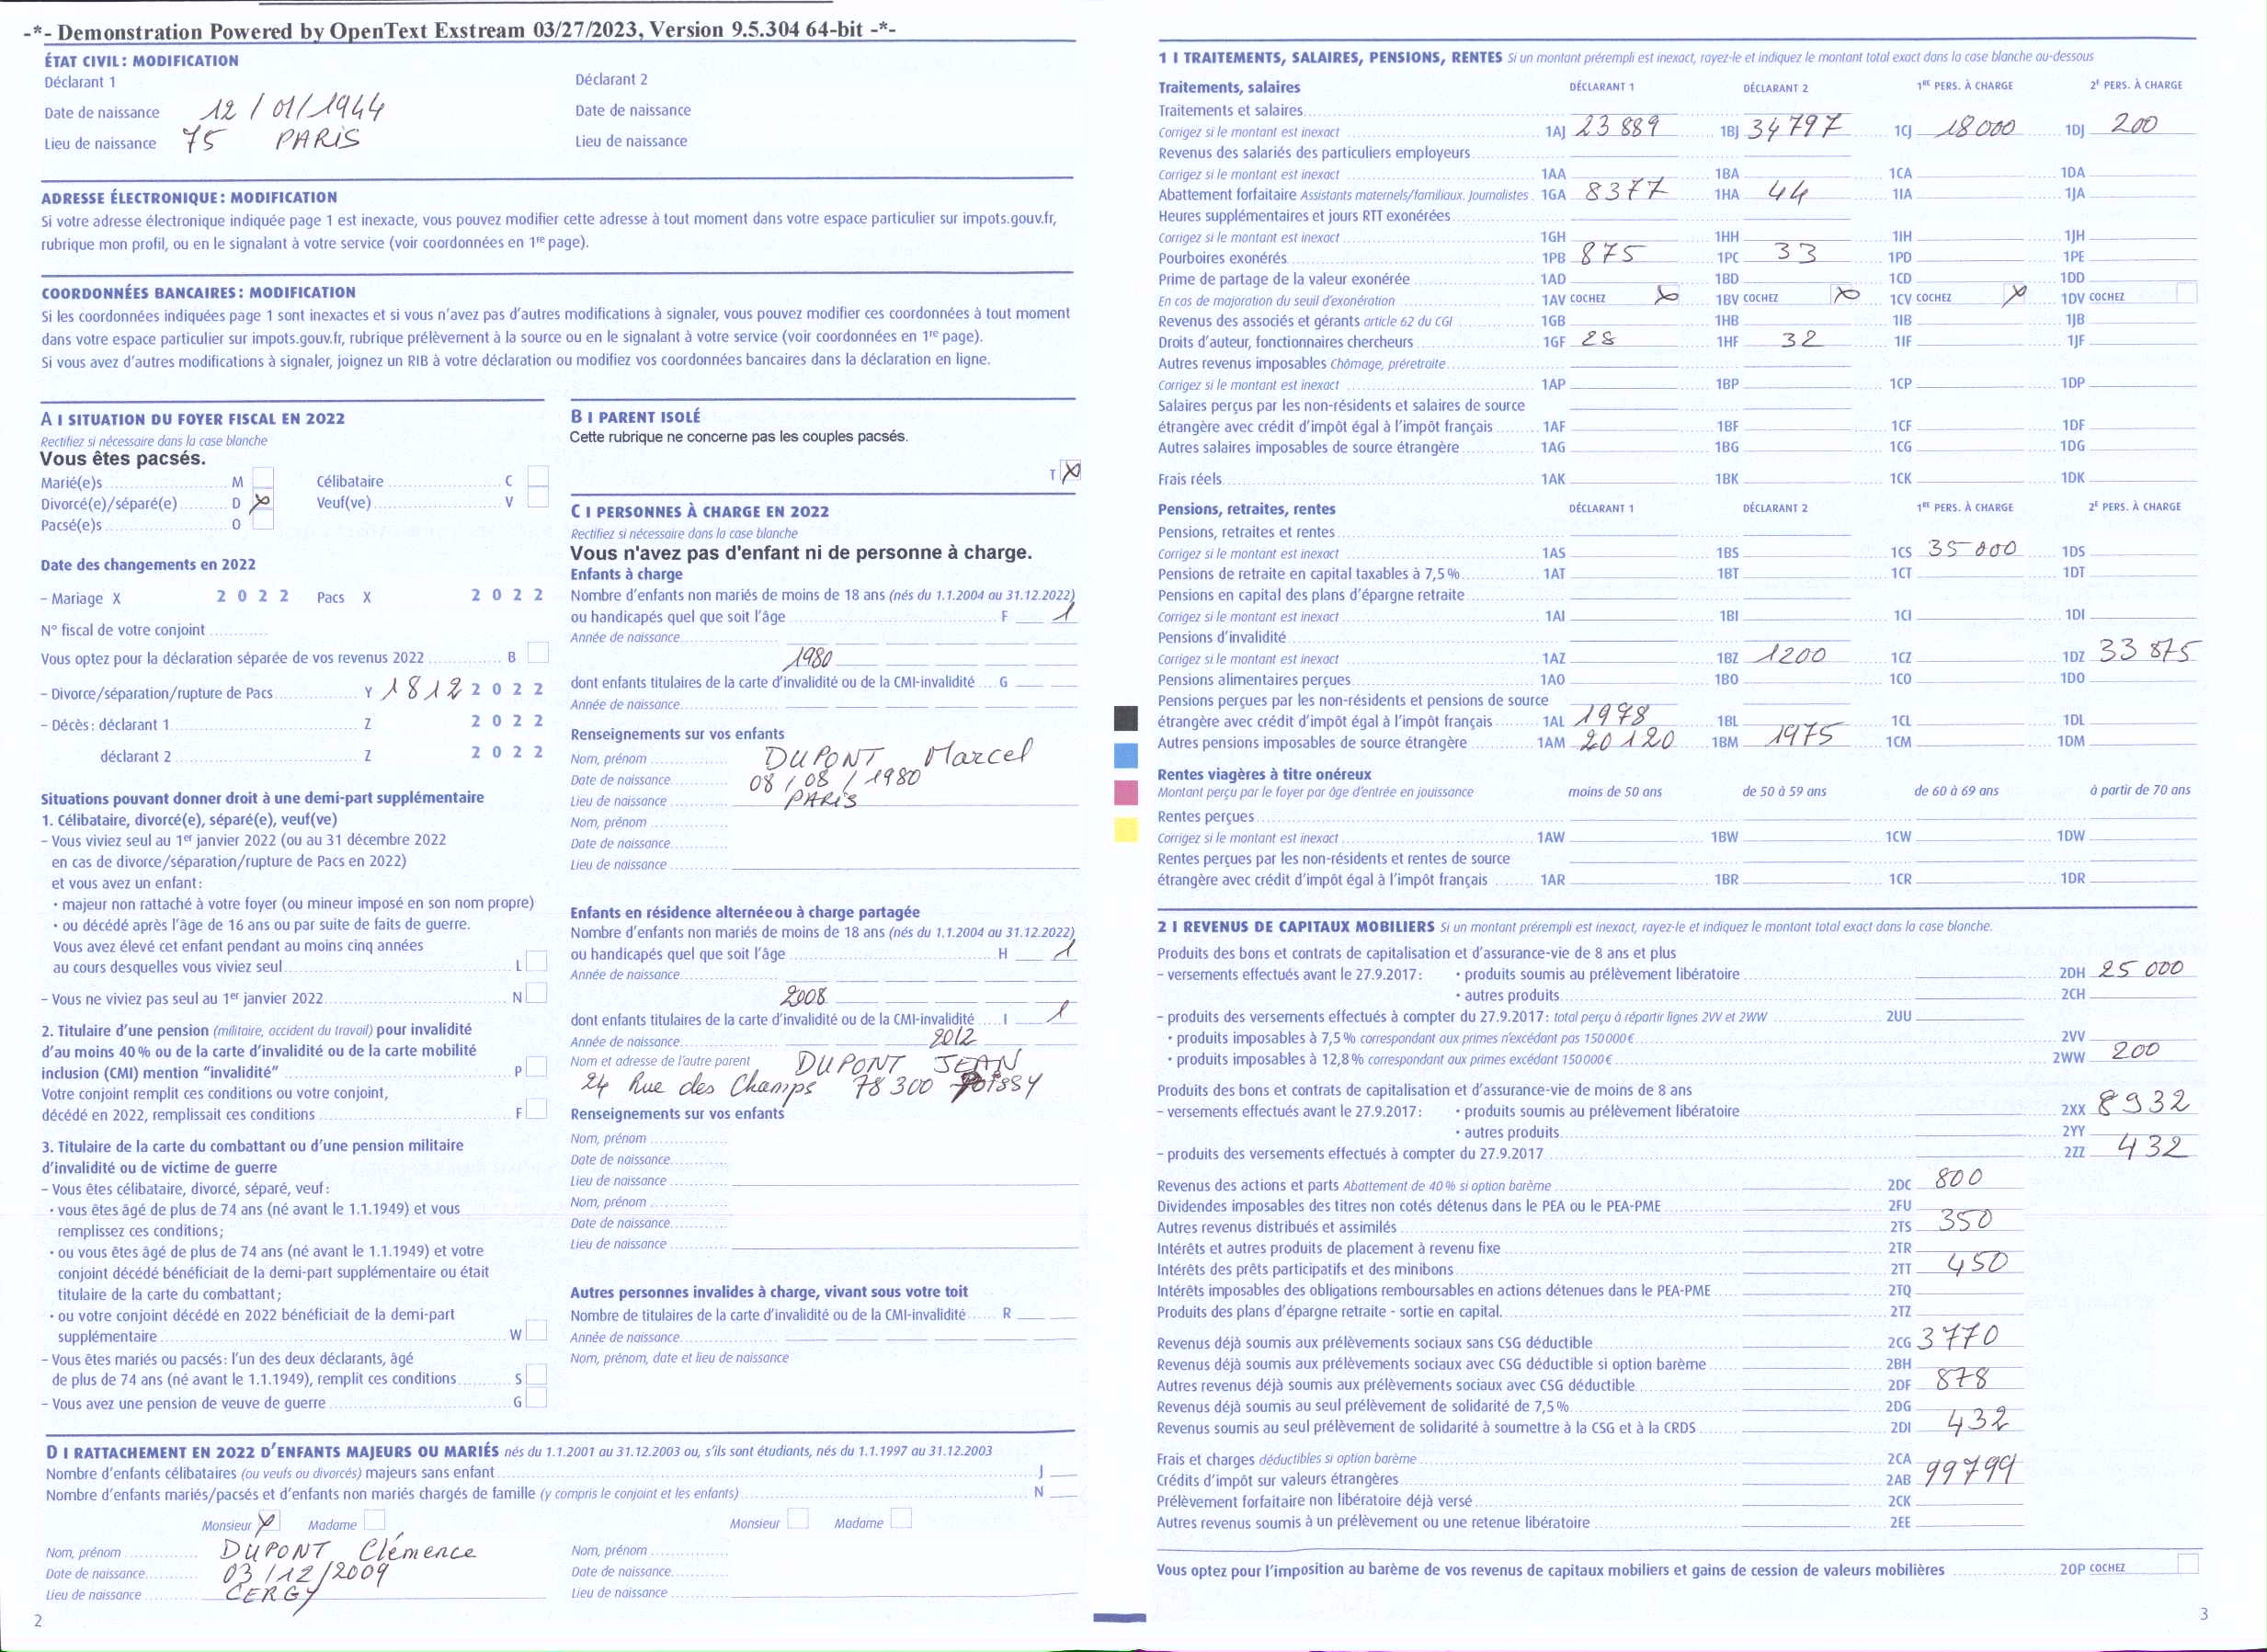 -*- Demonstration Powered by OpenText Exstream 03/27/2023, Version 9.5.304 64-bit -*-
ÉTAT CIVIL: MODIFICATION
Déclarant 1
Déclarant 2
Date de naissance 12 / 01 / 1944
Date de naissance
Lieu de naissance 75 PARIS
Lieu de naissance
ADRESSE ÉLECTRONIQUE: MODIFICATION
Si votre adresse électronique indiquée page 1 est inexacte, vous pouvez modifier cette adresse à tout moment dans votre espace particulier sur impots.gouv.fr,
rubrique mon profil, ou en le signalant à votre service (voir coordonnées en 1re page).
COORDONNÉES BANCAIRES: MODIFICATION
Si les coordonnées indiquées page 1 sont inexactes et si vous n'avez pas d'autres modifications à signaler, vous pouvez modifier ces coordonnées à tout moment
dans votre espace particulier sur impots.gouv.fr, rubrique prélèvement à la source ou en le signalant à votre service (voir coordonnées en 1re page).
Si vous avez d'autres modifications à signaler, joignez un RIB à votre déclaration ou modifiez vos coordonnées bancaires dans la déclaration en ligne.
A I SITUATION DU FOYER FISCAL EN 2022
Rectifiez si nécessaire dans la case blanche
Vous êtes pacsés.
Marié(e)s M
Célibataire C
Divorcé(e)/séparé(e) D X
Veuf(ve) V
Pacsé(e)s O
Date des changements en 2022
- Mariage X 2 0 2 2 Pacs X 2 0 2 2
N° fiscal de votre conjoint
Vous optez pour la déclaration séparée de vos revenus 2022 B
- Divorce/séparation/rupture de Pacs Y 1 8 1 2 2 0 2 2
- Décès: déclarant 1 Z 2 0 2 2
déclarant 2 Z 2 0 2 2
Situations pouvant donner droit à une demi-part supplémentaire
1. Célibataire, divorcé(e), séparé(e), veuf(ve)
- Vous viviez seul au 1er janvier 2022 (ou au 31 décembre 2022
en cas de divorce/séparation/rupture de Pacs en 2022)
et vous avez un enfant:
• majeur non rattaché à votre foyer (ou mineur imposé en son nom propre)
• ou décédé après l'âge de 16 ans ou par suite de faits de guerre.
Vous avez élevé cet enfant pendant au moins cinq années
au cours desquelles vous viviez seul L
- Vous ne viviez pas seul au 1er janvier 2022 N
2. Titulaire d'une pension (militaire, accident du travail) pour invalidité
d'au moins 40 % ou de la carte d'invalidité ou de la carte mobilité
inclusion (CMI) mention "invalidité" P
Votre conjoint remplit ces conditions ou votre conjoint,
décédé en 2022, remplissait ces conditions F
3. Titulaire de la carte du combattant ou d'une pension militaire
d'invalidité ou de victime de guerre
- Vous êtes célibataire, divorcé, séparé, veuf:
• vous êtes âgé de plus de 74 ans (né avant le 1.1.1949) et vous
remplissez ces conditions;
• ou vous êtes âgé de plus de 74 ans (né avant le 1.1.1949) et votre
conjoint décédé bénéficiait de la demi-part supplémentaire ou était
titulaire de la carte du combattant;
• ou votre conjoint décédé en 2022 bénéficiait de la demi-part
supplémentaire W
- Vous êtes mariés ou pacsés: l'un des deux déclarants, âgé
de plus de 74 ans (né avant le 1.1.1949), remplit ces conditions S
- Vous avez une pension de veuve de guerre G
B I PARENT ISOLÉ
Cette rubrique ne concerne pas les couples pacsés.
T X
C I PERSONNES À CHARGE EN 2022
Rectifiez si nécessaire dans la case blanche
Vous n'avez pas d'enfant ni de personne à charge.
Enfants à charge
Nombre d'enfants non mariés de moins de 18 ans (nés du 1.1.2004 au 31.12.2022)
ou handicapés quel que soit l'âge F 1
Année de naissance
1980
dont enfants titulaires de la carte d'invalidité ou de la CMI-invalidité G
Année de naissance
Renseignements sur vos enfants
Nom, prénom DUPONT Marcel
Date de naissance 08 / 08 / 1980
Lieu de naissance PARIS
Nom, prénom
Date de naissance
Lieu de naissance
Enfants en résidence alternée ou à charge partagée
Nombre d'enfants non mariés de moins de 18 ans (nés du 1.1.2004 au 31.12.2022)
ou handicapés quel que soit l'âge H 1
Année de naissance
2008
dont enfants titulaires de la carte d'invalidité ou de la CMI-invalidité I 1
Année de naissance 2012
Nom et adresse de l'autre parent DUPONT JEAN
24 Rue des Champs 78 300 POISSY
Renseignements sur vos enfants
Nom, prénom
Date de naissance
Lieu de naissance
Nom, prénom
Date de naissance
Lieu de naissance
Autres personnes invalides à charge, vivant sous votre toit
Nombre de titulaires de la carte d'invalidité ou de la CMI-invalidité R
Année de naissance
Nom, prénom, date et lieu de naissance
D I RATTACHEMENT EN 2022 D'ENFANTS MAJEURS OU MARIÉS nés du 1.1.2001 au 31.12.2003 ou, s'ils sont étudiants, nés du 1.1.1997 au 31.12.2003
Nombre d'enfants célibataires (ou veufs ou divorcés) majeurs sans enfant J
Nombre d'enfants mariés/pacsés et d'enfants non mariés chargés de famille (y compris le conjoint et les enfants) N
Monsieur X Madame
Monsieur Madame
Nom, prénom DUPONT Clémence
Nom, prénom
Date de naissance 03 / 12 / 2009
Date de naissance
Lieu de naissance CERGY
Lieu de naissance
2
1 I TRAITEMENTS, SALAIRES, PENSIONS, RENTES Si un montant prérempli est inexact, rayez-le et indiquez le montant total exact dans la case blanche au-dessous
Traitements, salaires DÉCLARANT 1 DÉCLARANT 2 1RE PERS. À CHARGE 2E PERS. À CHARGE
Traitements et salaires
Corrigez si le montant est inexact 1AJ 23 889 1BJ 34 797 1CJ 18 000 1DJ 200
Revenus des salariés des particuliers employeurs
Corrigez si le montant est inexact 1AA 1BA 1CA 1DA
Abattement forfaitaire Assistants maternels/familiaux. Journalistes 1GA 8377 1HA 44 1IA 1JA
Heures supplémentaires et jours RTT exonérées
Corrigez si le montant est inexact 1GH 1HH 1IH 1JH
Pourboires exonérés 1PB 875 1PC 33 1PD 1PE
Prime de partage de la valeur exonérée 1AD 1BD 1CD 1DD
En cas de majoration du seuil d'exonération 1AV COCHEZ X 1BV COCHEZ X 1CV COCHEZ X 1DV COCHEZ
Revenus des associés et gérants article 62 du CGI 1GB 1HB 1IB 1JB
Droits d'auteur, fonctionnaires chercheurs 1GF 28 1HF 32 1IF 1JF
Autres revenus imposables Chômage, préretraite
Corrigez si le montant est inexact 1AP 1BP 1CP 1DP
Salaires perçus par les non-résidents et salaires de source
étrangère avec crédit d'impôt égal à l'impôt français 1AF 1BF 1CF 1DF
Autres salaires imposables de source étrangère 1AG 1BG 1CG 1DG
Frais réels 1AK 1BK 1CK 1DK
Pensions, retraites, rentes DÉCLARANT 1 DÉCLARANT 2 1RE PERS. À CHARGE 2E PERS. À CHARGE
Pensions, retraites et rentes
Corrigez si le montant est inexact 1AS 1BS 1CS 35 000 1DS
Pensions de retraite en capital taxables à 7,5 % 1AT 1BT 1CT 1DT
Pensions en capital des plans d'épargne retraite
Corrigez si le montant est inexact 1AI 1BI 1CI 1DI
Pensions d'invalidité
Corrigez si le montant est inexact 1AZ 1BZ 1200 1CZ 1DZ 33 875
Pensions alimentaires perçues 1AO 1BO 1CO 1DO
Pensions perçues par les non-résidents et pensions de source
étrangère avec crédit d'impôt égal à l'impôt français 1AL 1978 1BL 1CL 1DL
Autres pensions imposables de source étrangère 1AM 20 120 1BM 1975 1CM 1DM
Rentes viagères à titre onéreux
Montant perçu par le foyer par âge d'entrée en jouissance moins de 50 ans de 50 à 59 ans de 60 à 69 ans à partir de 70 ans
Rentes perçues
Corrigez si le montant est inexact 1AW 1BW 1CW 1DW
Rentes perçues par les non-résidents et rentes de source
étrangère avec crédit d'impôt égal à l'impôt français 1AR 1BR 1CR 1DR
2 I REVENUS DE CAPITAUX MOBILIERS Si un montant prérempli est inexact, rayez-le et indiquez le montant total exact dans la case blanche.
Produits des bons et contrats de capitalisation et d'assurance-vie de 8 ans et plus
- versements effectués avant le 27.9.2017: • produits soumis au prélèvement libératoire 2DH 25 000
• autres produits 2CH
- produits des versements effectués à compter du 27.9.2017: total perçu à répartir lignes 2VV et 2WW 2UU
• produits imposables à 7,5 % correspondant aux primes n'excédant pas 150 000 € 2VV
• produits imposables à 12,8 % correspondant aux primes excédant 150 000 € 2WW 200
Produits des bons et contrats de capitalisation et d'assurance-vie de moins de 8 ans
- versements effectués avant le 27.9.2017: • produits soumis au prélèvement libératoire 2XX 8932
• autres produits 2YY
- produits des versements effectués à compter du 27.9.2017 2ZZ 432
Revenus des actions et parts Abattement de 40 % si option barème 2DC 800
Dividendes imposables des titres non cotés détenus dans le PEA ou le PEA-PME 2FU
Autres revenus distribués et assimilés 2TS 350
Intérêts et autres produits de placement à revenu fixe 2TR
Intérêts des prêts participatifs et des minibons 2TT 450
Intérêts imposables des obligations remboursables en actions détenues dans le PEA-PME 2TQ
Produits des plans d'épargne retraite - sortie en capital. 2TZ
Revenus déjà soumis aux prélèvements sociaux sans CSG déductible 2CG 3770
Revenus déjà soumis aux prélèvements sociaux avec CSG déductible si option barème 2BH
Autres revenus déjà soumis aux prélèvements sociaux avec CSG déductible 2DF 878
Revenus déjà soumis au seul prélèvement de solidarité de 7,5 % 2DG
Revenus soumis au seul prélèvement de solidarité à soumettre à la CSG et à la CRDS 2DI 432
Frais et charges déductibles si option barème 2CA
Crédits d'impôt sur valeurs étrangères 2AB 99799
Prélèvement forfaitaire non libératoire déjà versé 2CK
Autres revenus soumis à un prélèvement ou une retenue libératoire 2EE
Vous optez pour l'imposition au barème de vos revenus de capitaux mobiliers et gains de cession de valeurs mobilières 2OP COCHEZ
3